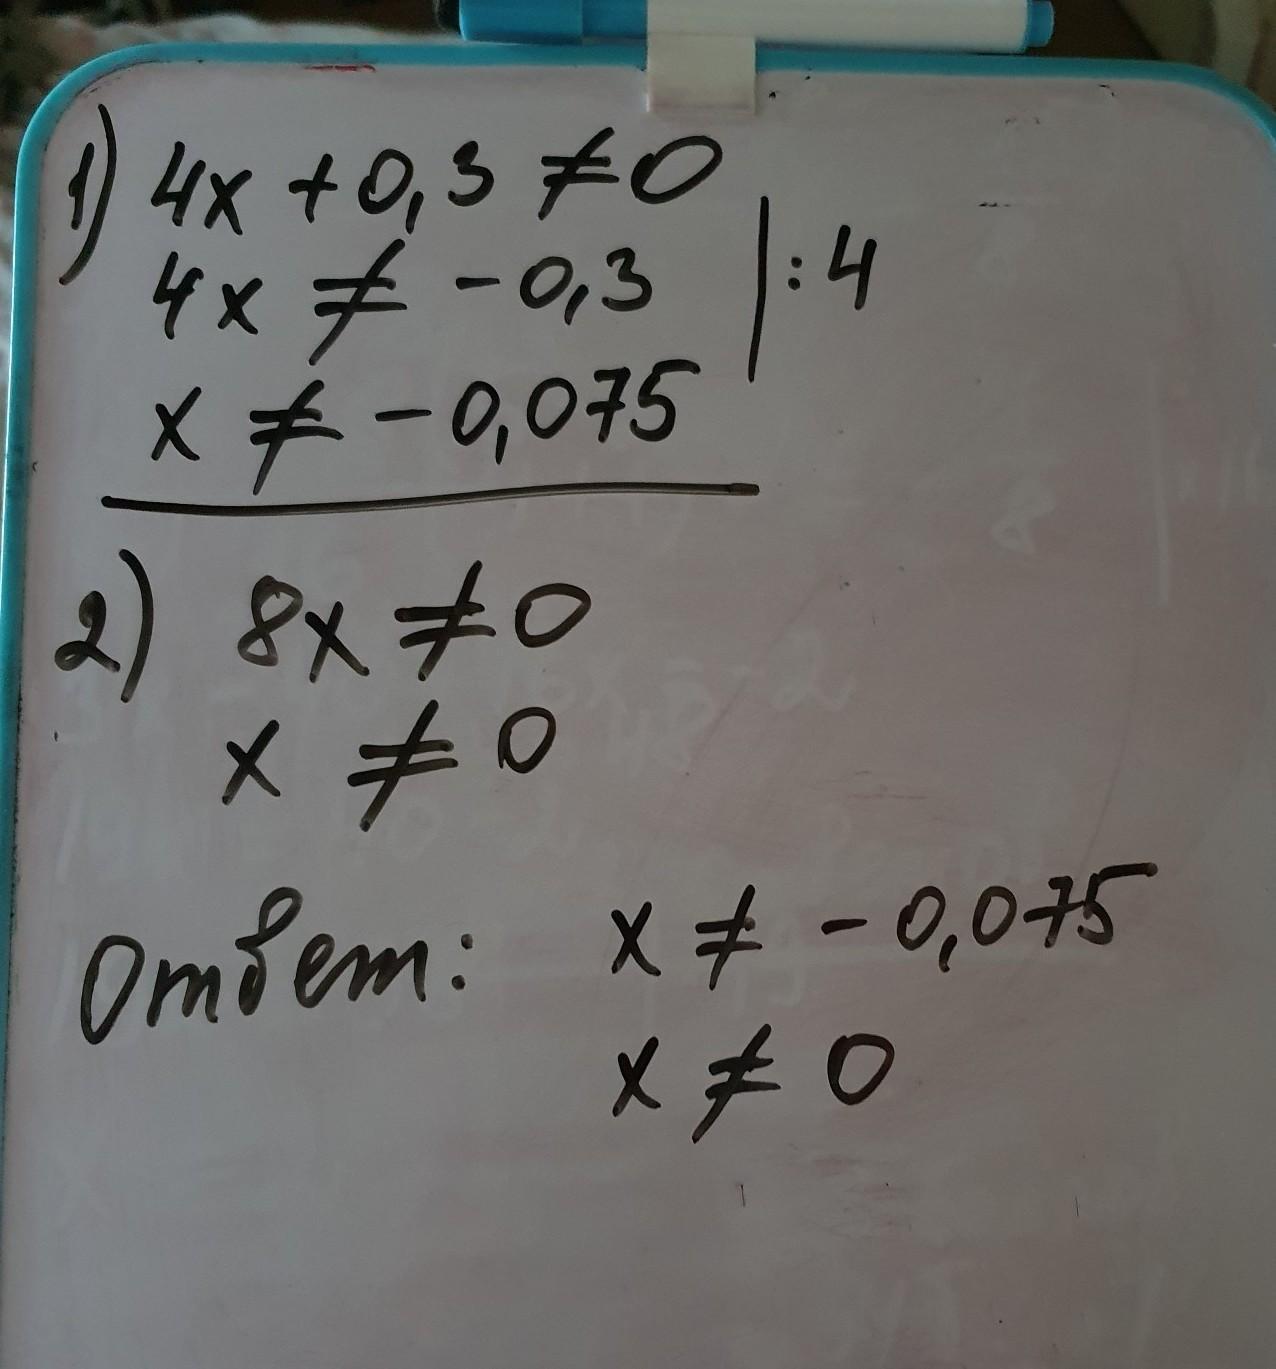 1) 4x + 0,3 ≠ 0
4x ≠ - 0,3 | : 4
x ≠ - 0,075
2) 8x ≠ 0
x ≠ 0
Ответ: x ≠ - 0,075
x ≠ 0